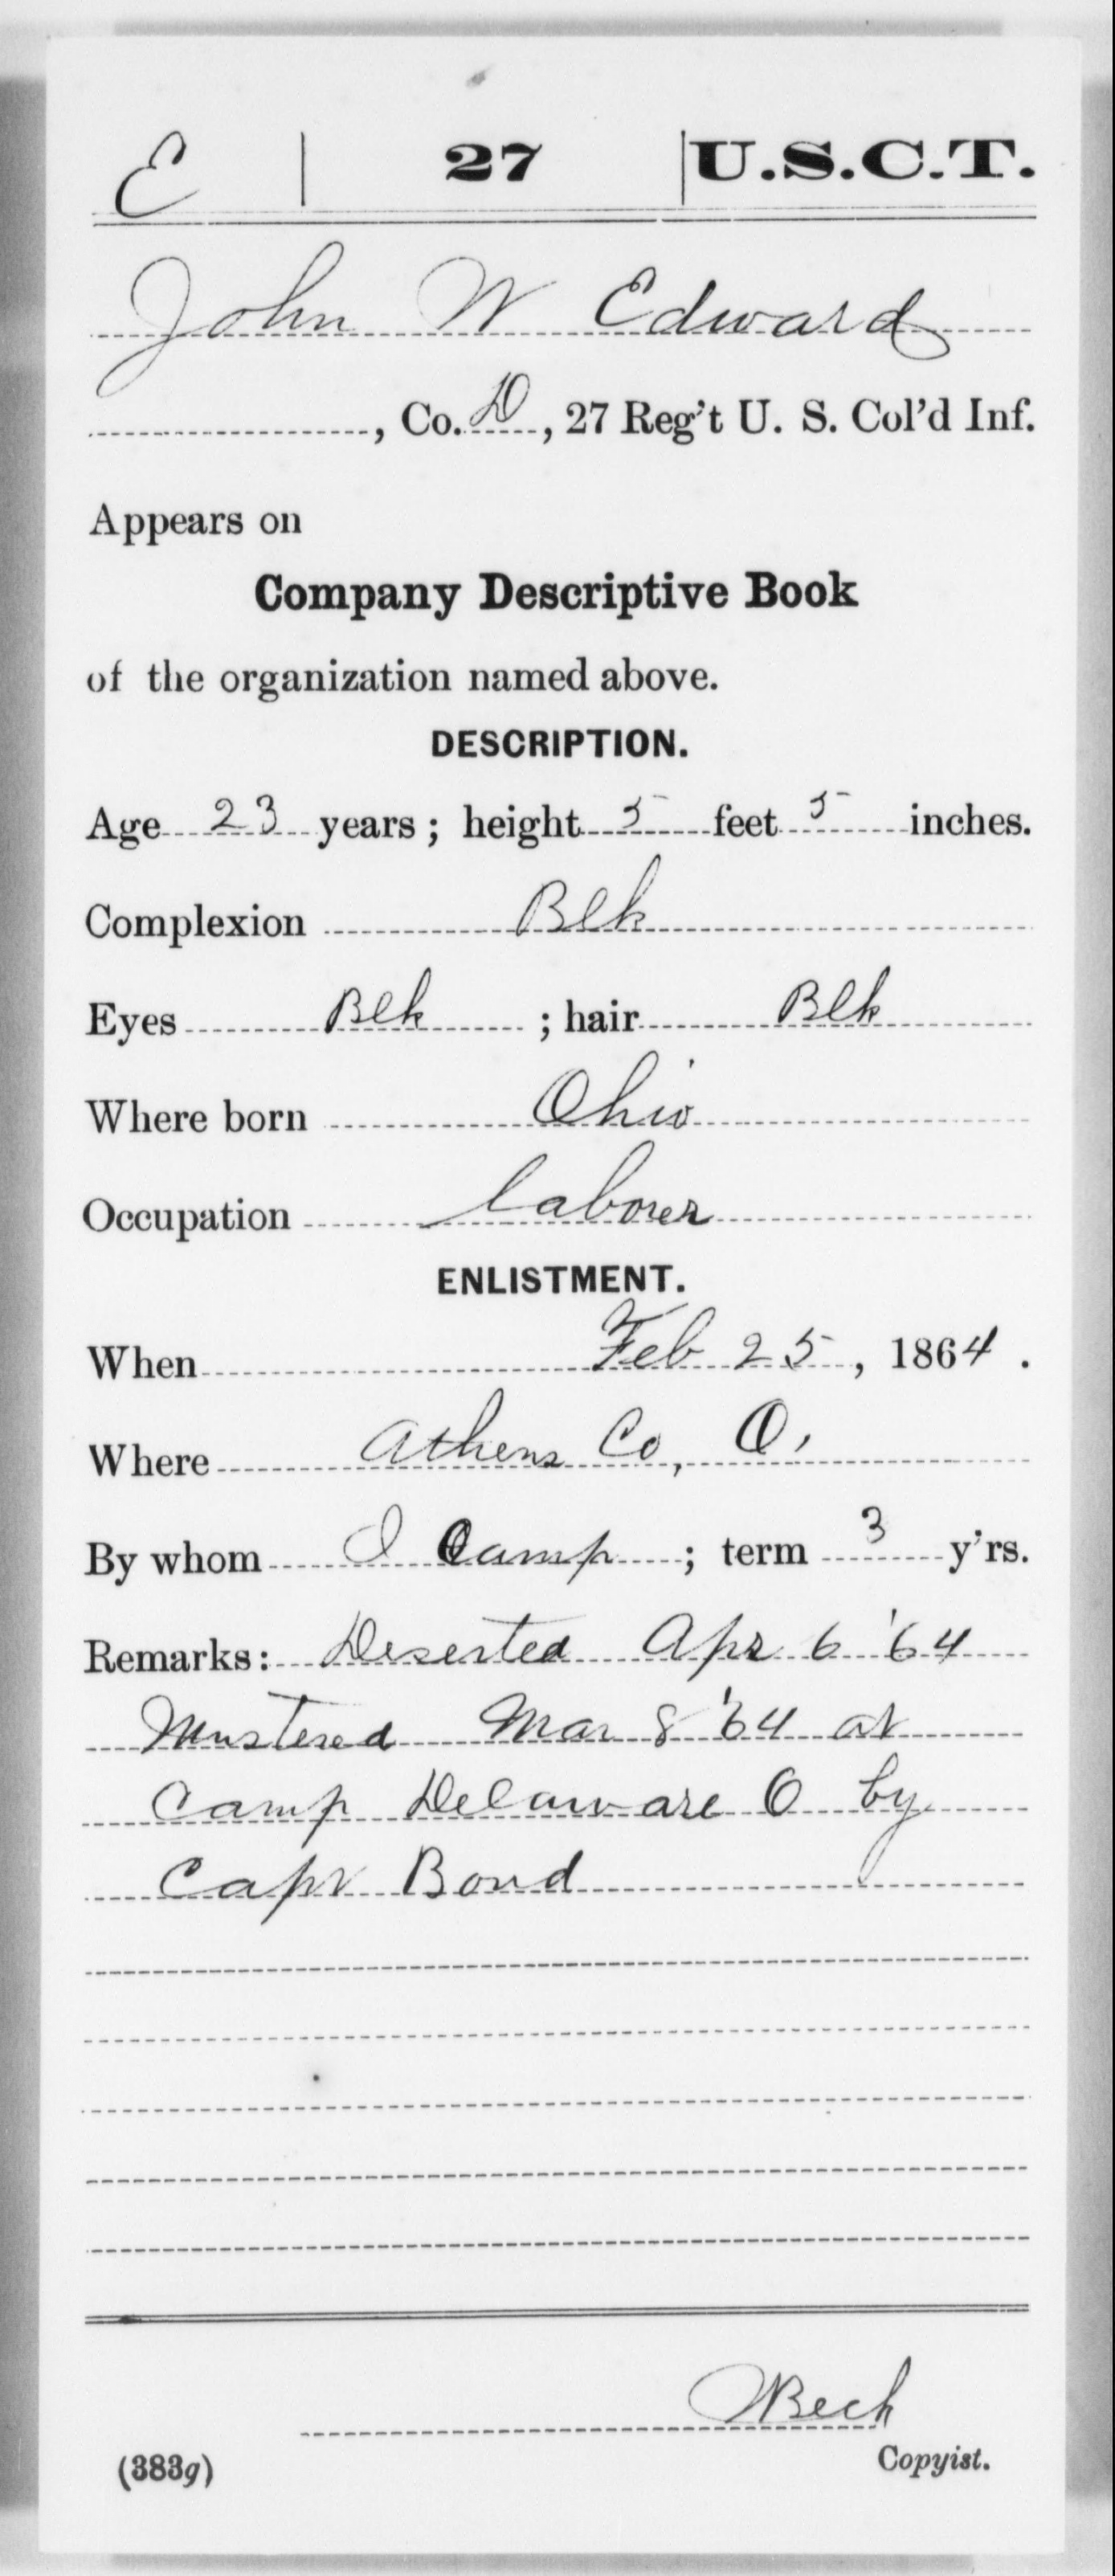 E | 27 | U.S.C.T.
John W Edward
, Co. D, 27 Reg't U. S. Col'd Inf.
Appears on
Company Descriptive Book
of the organization named above.
DESCRIPTION.
Age 23 years; height 5 feet 5 inches.
Complexion Blk
Eyes Blk ; hair Blk
Where born Ohio
Occupation laborer
ENLISTMENT.
When Feb 25, 1864.
Where Athens Co, O,
By whom I Camp ; term 3 y'rs.
Remarks: Deserted Apr 6 '64
Mustered Mar 8 '64 at
Camp Delaware O by
Capt Bond
Beck
(383g) Copyist.